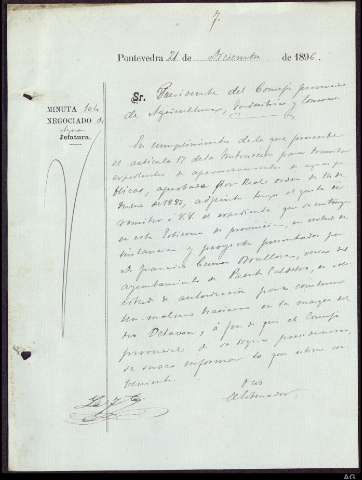 7.
Pontevedra 21 de Diciembre de 1896.
Sr. Presidente del Consejo provincial
de Agricultura, Industria y Comercio
MINUTA
NEGOCIADO
Jefatura.
En cumplimiento de lo que previene
el artículo 17 de la Instrucción para tramitar
expedientes de aprovechamiento de aguas pú-
blicas, aprobada por Real orden de 14 de
de 1883, adjunto tengo el gusto de
remitir á V.S. el expediente que se instruye
en este Gobierno de provincia, en virtud de
instancia y proyecto presentados por
D. Francisco vecino del
Ayuntamiento de Puente Caldelas, en soli-
citud de autorización para construir
un molino harinero en la margen del
río Oitaven, á fin de que el Consejo
provincial de su digna presidencia
se sirva informar lo que estime con-
veniente.
Dios
El Gobernador,
AG